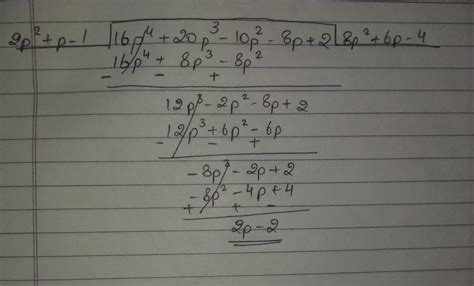 2p² + p - 1 | 16p⁴ + 20p³ - 10p² - 8p + 2 | 8p² + 6p - 4
16p⁴ + 8p³ - 8p²
- - +
12p³ - 2p² - 8p + 2
12p³ + 6p² - 6p
- - +
- 8p² - 2p + 2
- 8p² - 4p + 4
+ + -
2p - 2